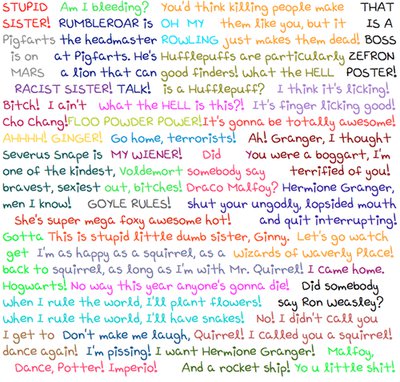 STUPID Am I bleeding? You'd think killing people make THAT
SISTER! RUMBLEROAR is OH MY them like you, but it IS A
Pigfarts the headmaster ROWLING just makes them dead! BOSS
is on at Pigfarts. He's Hufflepuffs are particularly ZEFRON
MARS a lion that can good finders! what the HELL POSTER!
RACIST SISTER! TALK! is a Hufflepuff? I think it's licking!
Bitch! I ain't what the HELL is this?! It's finger licking good!
Cho Chang! FLOO POWDER POWER! It's gonna be totally awesome!
AHHHH! GINGER! Go home, terrorists! Ah! Granger, I thought
Severus Snape is MY WIENER! Did You were a boggart, I'm
one of the kindest, Voldemort somebody say terrified of you!
bravest, sexiest out, bitches! Draco Malfoy? Hermione Granger,
men I know! GOYLE RULES! shut your ungodly, lopsided mouth
She's super mega foxy awesome hot! and quit interrupting!
Gotta This is stupid little dumb sister, Ginny. Let's go watch
get I'm as happy as a squirrel, as a wizards of Waverly Place!
back to squirrel, as long as I'm with Mr. Quirrel! I came home.
Hogwarts! No way this year anyone's gonna die! Did somebody
when I rule the world, I'll plant flowers! say Ron Weasley?
when I rule the world, I'll have snakes! No! I didn't call you
I get to Don't make me laugh, Quirrel! I called you a squirrel!
dance again! I'm pissing! I want Hermione Granger! Malfoy,
Dance, Potter! Imperio! And a rocket ship! Yo u little shit!